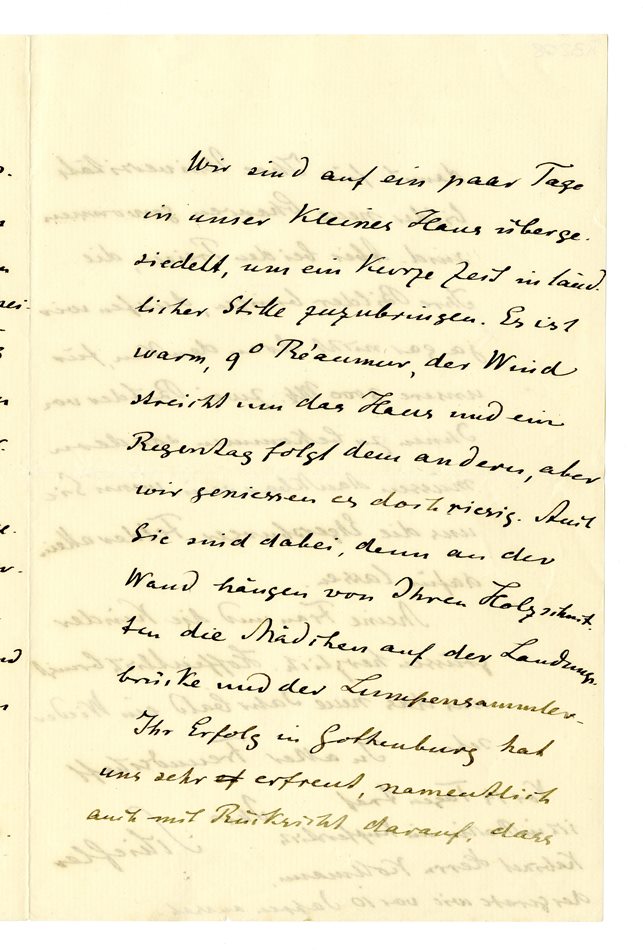 Wir sind auf ein paar Tage
in unser kleines Haus überge-
siedelt, um ein kurze Zeit in länd-
licher Stille zuzubringen. Es ist
warm, 9° Réaumur, der Wind
streicht um das Haus und ein
Regentag folgt dem andern, aber
wir geniessen es doch riesig. Auch
Sie sind dabei, denn an der
Wand hängen von Ihren Holzschnit-
ten die Mädchen auf der Landungs-
brücke und der Lumpensammler.
Ihr Erfolg in Gothenburg hat
uns sehr erfreut, namentlich
auch mit Rücksicht darauf, dass